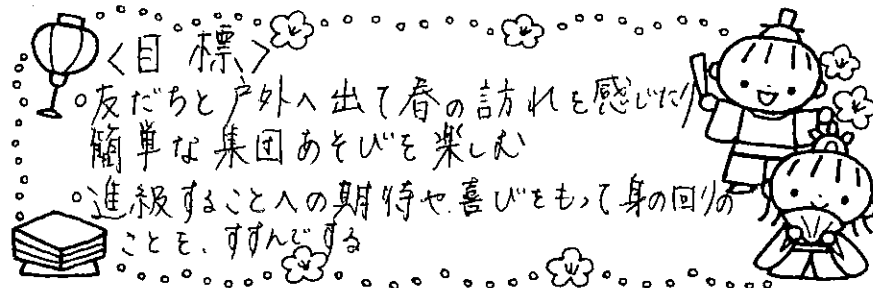 〈目標〉
○友だちと戸外へ出て春の訪れを感じたり
簡単な集団あそびを楽しむ
○進級することへの期待や、喜びをもって身の回りの
ことを、すすんでする